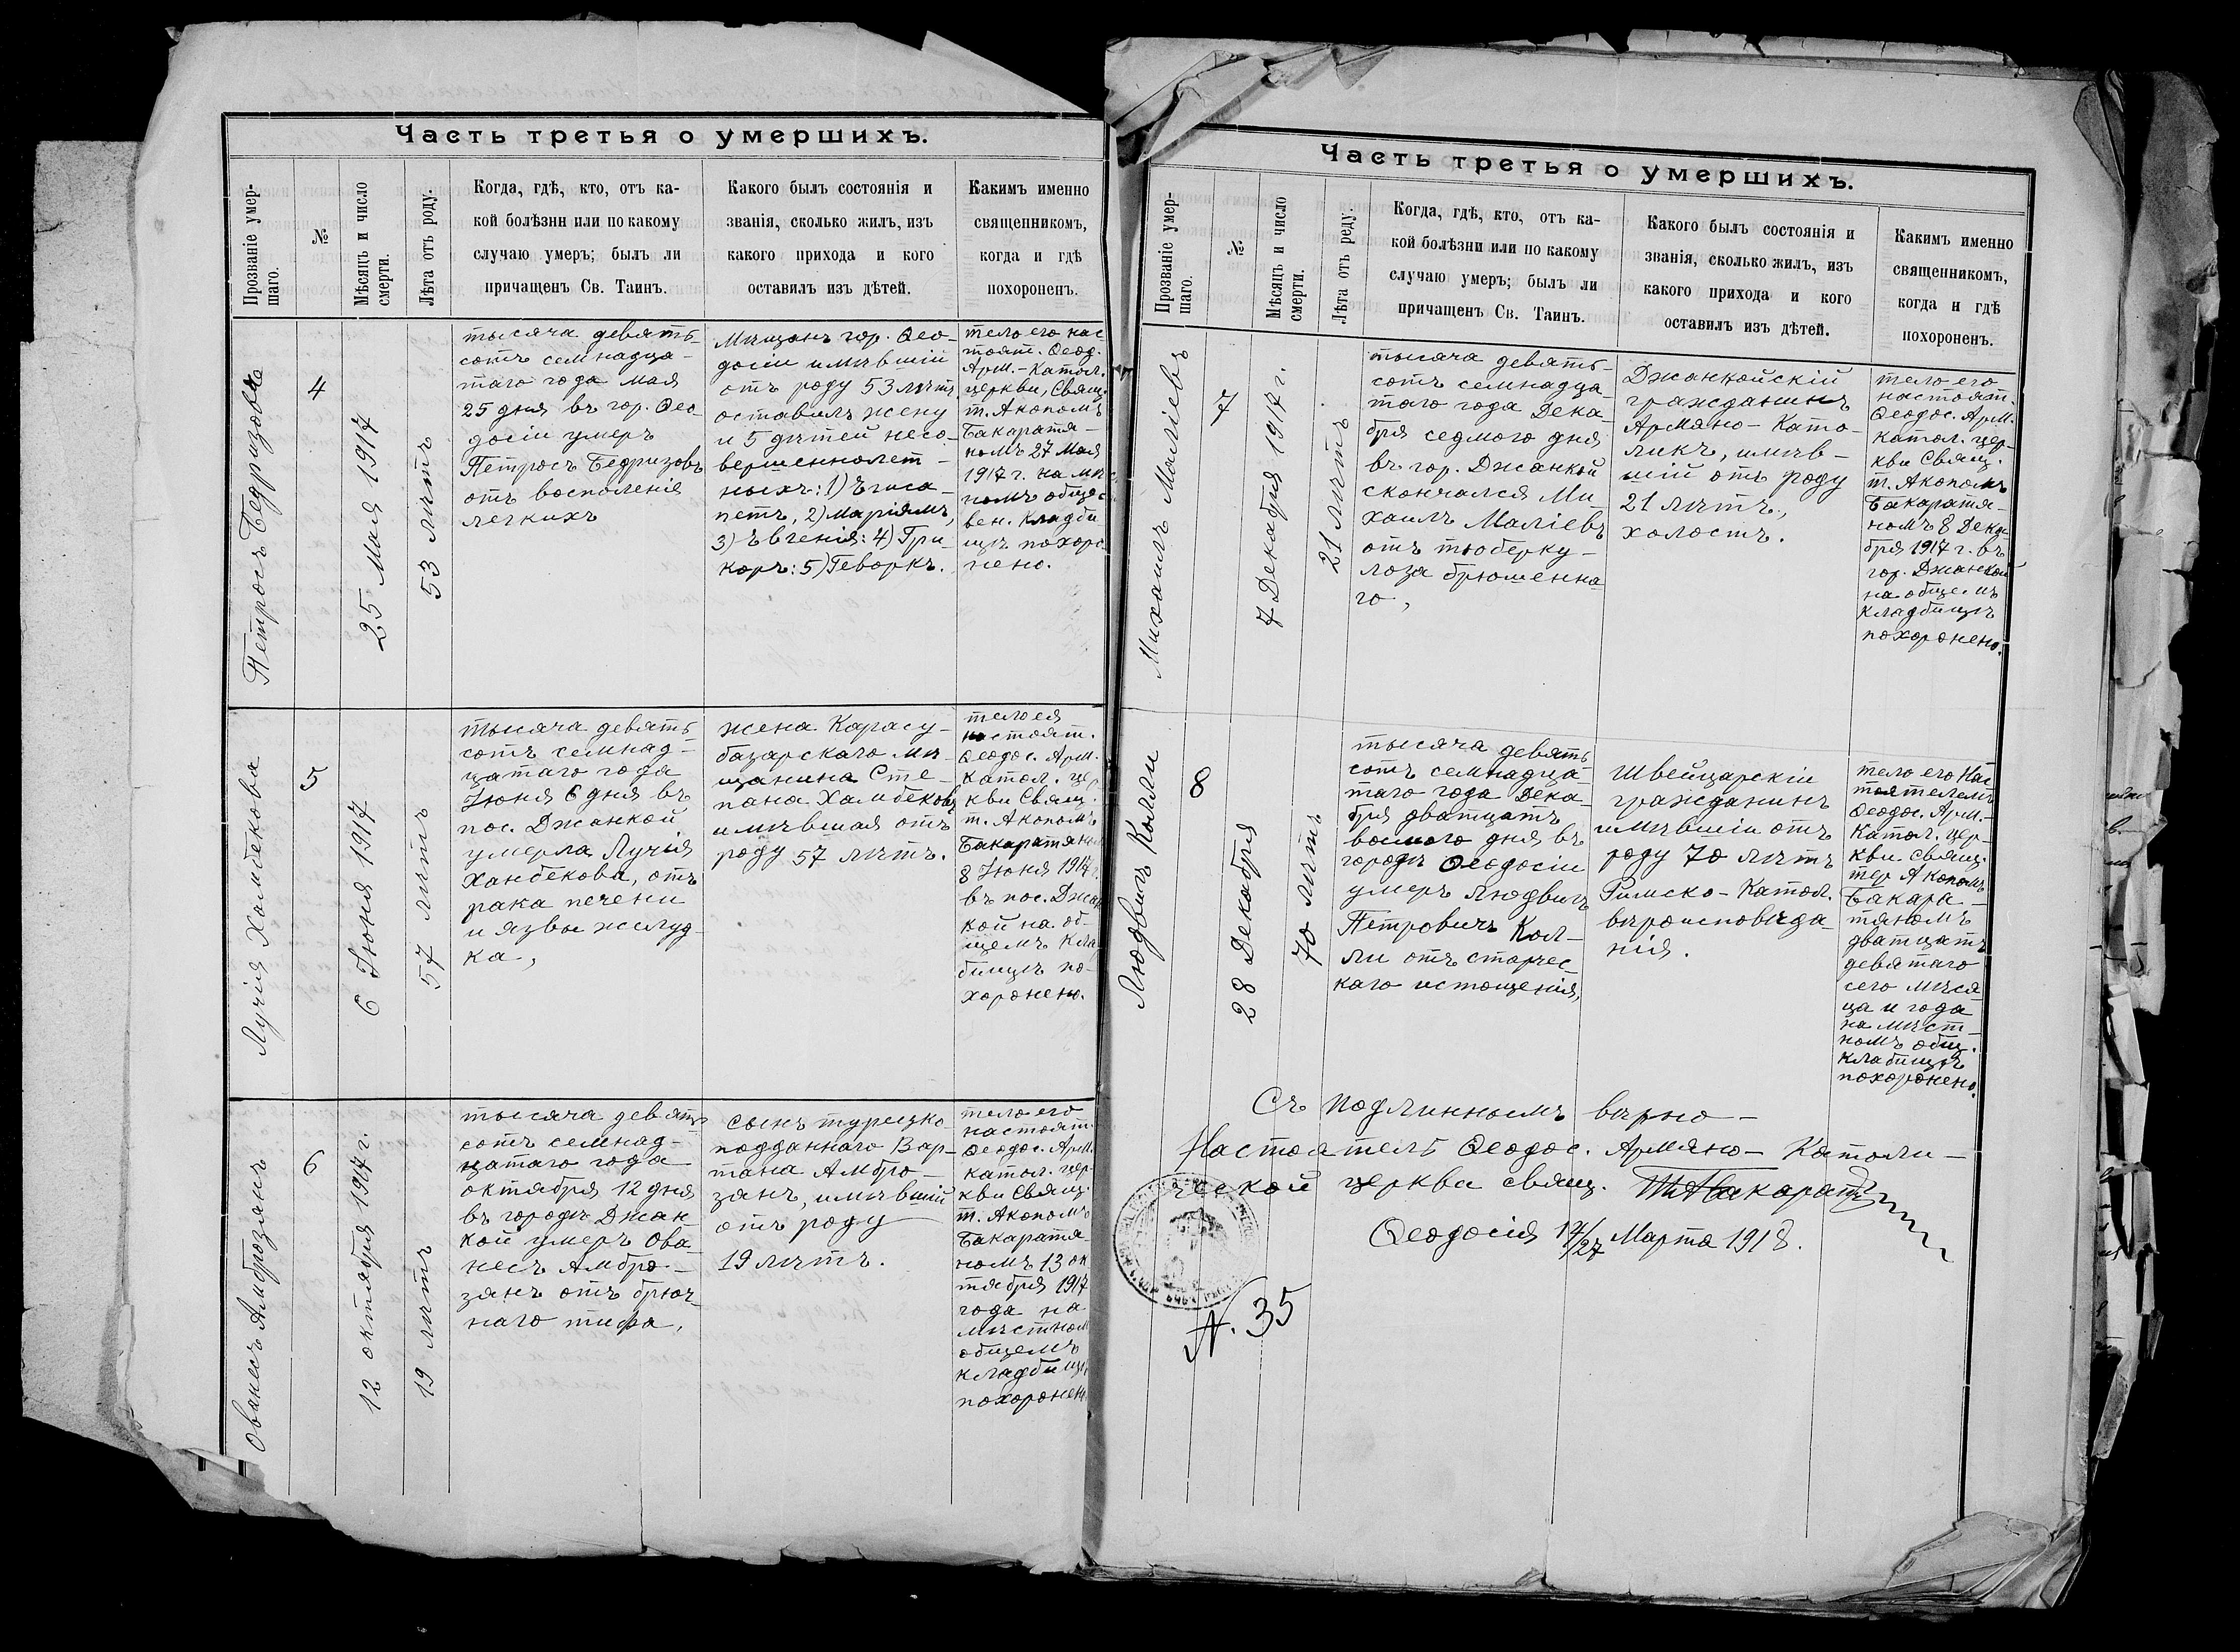 Часть третья о умершихъ.
Прозваніе умер-
шаго.
№
Мѣсяцъ и число
смерти.
Лѣта отъ роду.
Когда, гдѣ, кто, отъ ка-
кой болѣзни или по какому
случаю умеръ; былъ ли
причащенъ Св. Таинъ.
Какого былъ состоянія и
званія, сколько жилъ, изъ
какого прихода и кого
оставилъ изъ дѣтей.
Какимъ именно
священникомъ,
когда и гдѣ
похороненъ.
Петросъ
4
25 Мая 1917
53 лѣтъ
тысяча девять
сотъ семнадца-
таго года мая
25 дня въ гор. Ѳео-
досіи умеръ
Петросъ Бедризовъ
отъ воспаленія
легкихъ
Мѣщанъ гор. Ѳео-
досіи имѣвшій
отъ роду 53 лѣтъ
оставилъ жену
и 5 дѣтей несо-
вершеннолет-
ныхъ: 1)
2) Маріямъ,
3) Евгенія: 4) Гри-
коръ: 5) Геворкъ.
тело его нас
тоят. Ѳеод.
Арм.-Катол.
церкви, Свящ.
т. Акопомъ
Бакаратя-
номъ 27 Мая
1917 г. на мѣс
номъ общес
вен. Кладби
щѣ похоро-
нено.
Лучія Хамбекова
5
6 Іюня 1917
57 лѣтъ
тысяча девять
сотъ семнад-
цатаго года
Іюня 6 дня въ
пос. Джанкой
умерла Лучія
Ханбекова, отъ
рака печени
и язвы желуд-
ка,
жена Карасу-
базарскаго мѣ
щанина Сте-
пана Хамбекова
имѣвшая отъ
роду 57 лѣтъ.
тело ея
настоят.
Ѳеодос. Арм.
Катол. цер
кви Свящ.
т. Акопомъ
8 Іюня 1917 г.
въ пос. Джан
кой на об-
щемъ Кла
бищѣ по-
хоронено.
Ованесъ Амброзянъ
6
12 октября 1917 г.
19 лѣтъ
тысяча девять
сотъ семнад-
цатаго года
октября 12 дня
въ городѣ Джан
кой умеръ Ова
несъ Амбро-
занъ отъ брюш-
наго тифа,
сынъ турецко
подданнаго Вар-
тана Амбро-
занъ, имѣвшій
отъ роду
19 лѣтъ.
тело его
настоят.
Ѳеодос. Арм.
катол. цер
кви Свящ.
т. Акопомъ
Бакаратя
номъ 13 ок
тября 1917
года на
мѣстном
общемъ
кладбищѣ
похоронен
Часть третья о умершихъ.
Прозваніе умер-
шаго.
№
Мѣсяцъ и число
смерти.
Лѣта отъ роду.
Когда, гдѣ, кто, отъ ка-
кой болѣзни или по какому
случаю умеръ; былъ ли
причащенъ Св. Таинъ.
Какого былъ состоянія и
званія, сколько жилъ, изъ
какого прихода и кого
оставилъ изъ дѣтей.
Какимъ именно
священникомъ,
когда и гдѣ
похороненъ.
Михаилъ Маліевъ
7
7 Декабря 1917 г.
21 лѣтъ
тысяча девять-
сотъ семнадца
таго года Дека
бря седмого дня
въ гор. Джанкой
скончался Ми-
хаилъ Маліевъ
отъ тюберку-
лоза брюшенна
го,
Джанкойскій
гражданинъ
Армяно-Като-
ликъ, имѣв-
шій отъ роду
21 лѣтъ,
холостъ.
тело его
настоят.
Ѳеодос. Арм.
катол. цер-
кви Свящ.
т. Акопомъ
Бакаратя-
номъ 8 Дека
бря 1917 г. въ
гор. Джанкой
на общемъ
кладбищѣ
похоронено.
Людвигъ Колли
8
28 Декабря
70 лѣтъ
тысяча девять
сотъ семнадца-
таго года Дека-
бря дватцать
восмого дня въ
городѣ Ѳеодосіи
умеръ Людвигъ
Петровичъ Кол-
ли отъ старчес-
каго истощенія,
Швейцарскіи
гражданинъ
имѣвшіи отъ
роду 70 лѣтъ
Римско-Катол.
вѣроисповѣда-
нія.
тело его Нас
тоятелемъ
Ѳеодос. Арм.-
Катол. цер-
кви свящ.
тер Акопомъ
Бакара-
тяномъ
дватцать
девятаго
сего мѣся
ца и года
на мѣст-
номъ общ.
клабищѣ
похоронено.
Съ подлиннымъ вѣрно-
Настоятель Ѳеодос. Армяно-Католи-
ческой церкви свящ.
Ѳеодосія 14/27 Марта 1918.
N. 35